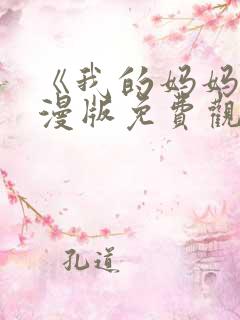 《我的妈妈
漫版免費觀
孔道